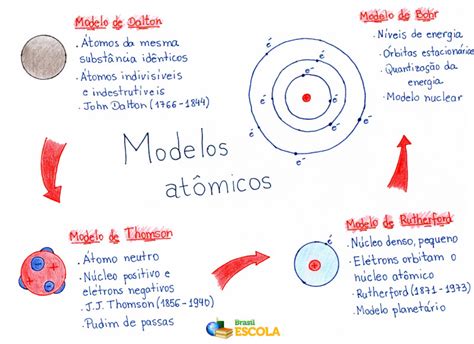 Modelo de Dalton
. Átomos da mesma
substância idênticos
. Átomos indivisíveis
e indestrutíveis
. John Dalton (1766-1844)
Modelo de Bohr
. Níveis de energia
. Órbitas estacionárias
. Quantização da
energia
. Modelo nuclear
e⁻
e⁻
e⁻
e⁻
e⁻
e⁻
e⁻
+
Modelos
atômicos
Modelo de Thomson
. Átomo neutro
. Núcleo positivo e
elétrons negativos
. J.J. Thomson (1856-1940)
. Pudim de passas
Modelo de Rutherford
. Núcleo denso, pequeno
. Elétrons orbitam o
núcleo atômico
. Rutherford (1871-1973)
. Modelo planetário
Brasil
ESCOLA